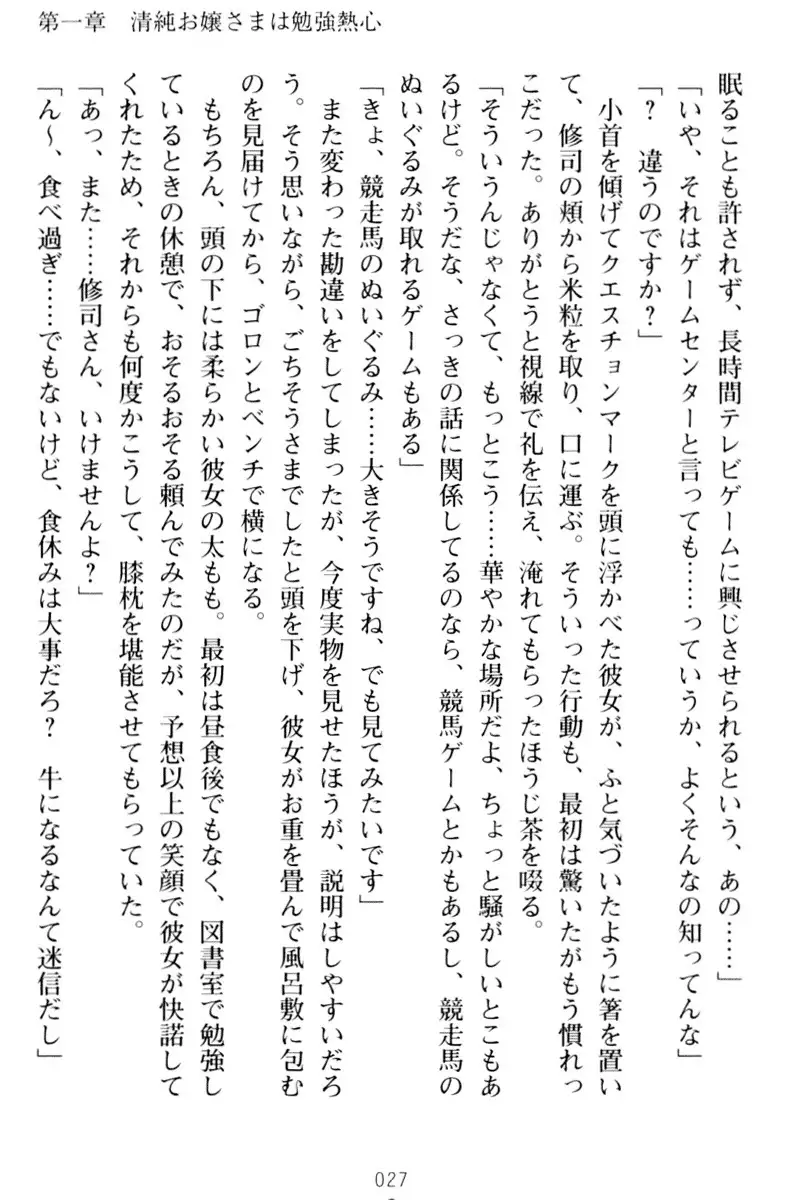 第一章　清純お嬢さまは勉強熱心
眠ることも許されず、長時間テレビゲームに興じさせられるという、あの……」
「いや、それはゲームセンターと言っても……っていうか、よくそんなの知ってんな」
「？　違うのですか？」
　小首を傾げてクエスチョンマークを頭に浮かべた彼女が、ふと気づいたように箸を置い
て、修司の頬から米粒を取り、口に運ぶ。そういった行動も、最初は驚いたがもう慣れっ
こだった。ありがとうと視線で礼を伝え、淹れてもらったほうじ茶を啜る。
「そういうんじゃなくて、もっとこう……華やかな場所だよ、ちょっと騒がしいとこもあ
るけど。そうだな、さっきの話に関係してるのなら、競馬ゲームとかもあるし、競走馬の
ぬいぐるみが取れるゲームもある」
「きょ、競走馬のぬいぐるみ……大きそうですね、でも見てみたいです」
　また変わった勘違いをしてしまったが、今度実物を見せたほうが、説明はしやすいだろ
う。そう思いながら、ごちそうさまでしたと頭を下げ、彼女がお重を畳んで風呂敷に包む
のを見届けてから、ゴロンとベンチで横になる。
　もちろん、頭の下には柔らかい彼女の太もも。最初は昼食後でもなく、図書室で勉強し
ているときの休憩で、おそるおそる頼んでみたのだが、予想以上の笑顔で彼女が快諾して
くれたため、それからも何度かこうして、膝枕を堪能させてもらっていた。
「あっ、また……修司さん、いけませんよ？」
「ん〜、食べ過ぎ……でもないけど、食休みは大事だろ？　牛になるなんて迷信だし」
027